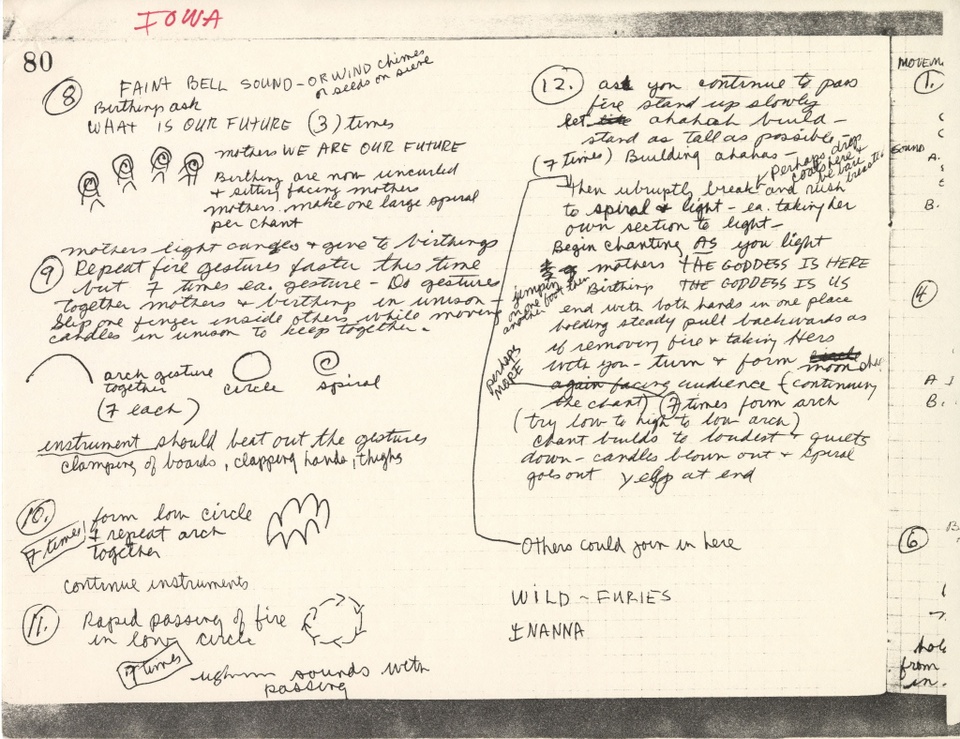 IOWA
80
8 FAINT BELL SOUND - OR WIND chimes
or seeds on
Birthings ask
WHAT IS OUR FUTURE (3) times
mothers WE ARE OUR FUTURE
Birthing are now uncurled
+ sitting facing mothers
mothers make one large spiral
per chant
mothers light candles + give to birthings
9 Repeat fire gestures faster this time
but 7 times ea. gesture - Do gestures
together mothers + birthing in unison -
Slip one finger inside others while moving
candles in unison to keep together.
arch gesture
together
circle
spiral
(7 each)
instrument should beat out the gestures
clamping of boards, clapping hands, thighs
10. form low circle
7 times
+ repeat arch
together
continue instruments
11. Rapid passing of fire
in low circle
7 times
sounds with
passing
12. as you continue to pass
fire stand up slowly
let ahahah build -
stand as tall as possible -
(7 times) Building ahahas -
perhaps drop
coats here +
be bare breasted
Then abruptly break and rush
to spiral + light - ea. taking her
own section to light -
Begin chanting AS you light
mothers THE GODDESS IS HERE
Birthing THE GODDESS IS US
jumping
on one foot then
another
end with both hands in one place
holding steady pull backwards as
if removing fire + taking Hers
with you - turn + form moon
perhaps
MORE
again facing audience (continuing
the chant) (7) times form arch
(try low to high to low arch)
chant builds to loudest + quiets
down - candles blown out + spiral
goes out yelp at end
Others could join in here
WILD - FURIES
INANNA
MOVEM
1.
C
C
SOUND
A.
B.
4
A
B.
6
from
in.